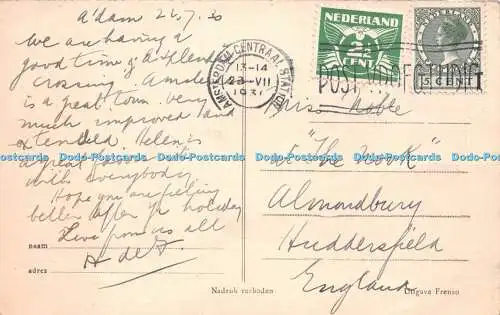 A'dam 22.7.30
We are having a
good time & a splendid
crossing. Amsterdam
is a great town. Very
much improved and
extended. Helen is
a great
with everybody
Hope you are feeling
better after yr holiday
Love from us all
A de J.
naam
adres
Nadruk verboden
Uitgave Frenzo
NEDERLAND
2½
CENT
NEDERLAND
AMSTERDAM CENTRAAL STATION
13-14
VII
POST VOOR
Miss Noble
"The Nook"
Almondbury
Huddersfield
England
Dodo-Postcards Dodo-Postcards Dodo-Postcards Dodo-Postcards Dodo-Postcards Dodo-Postcards